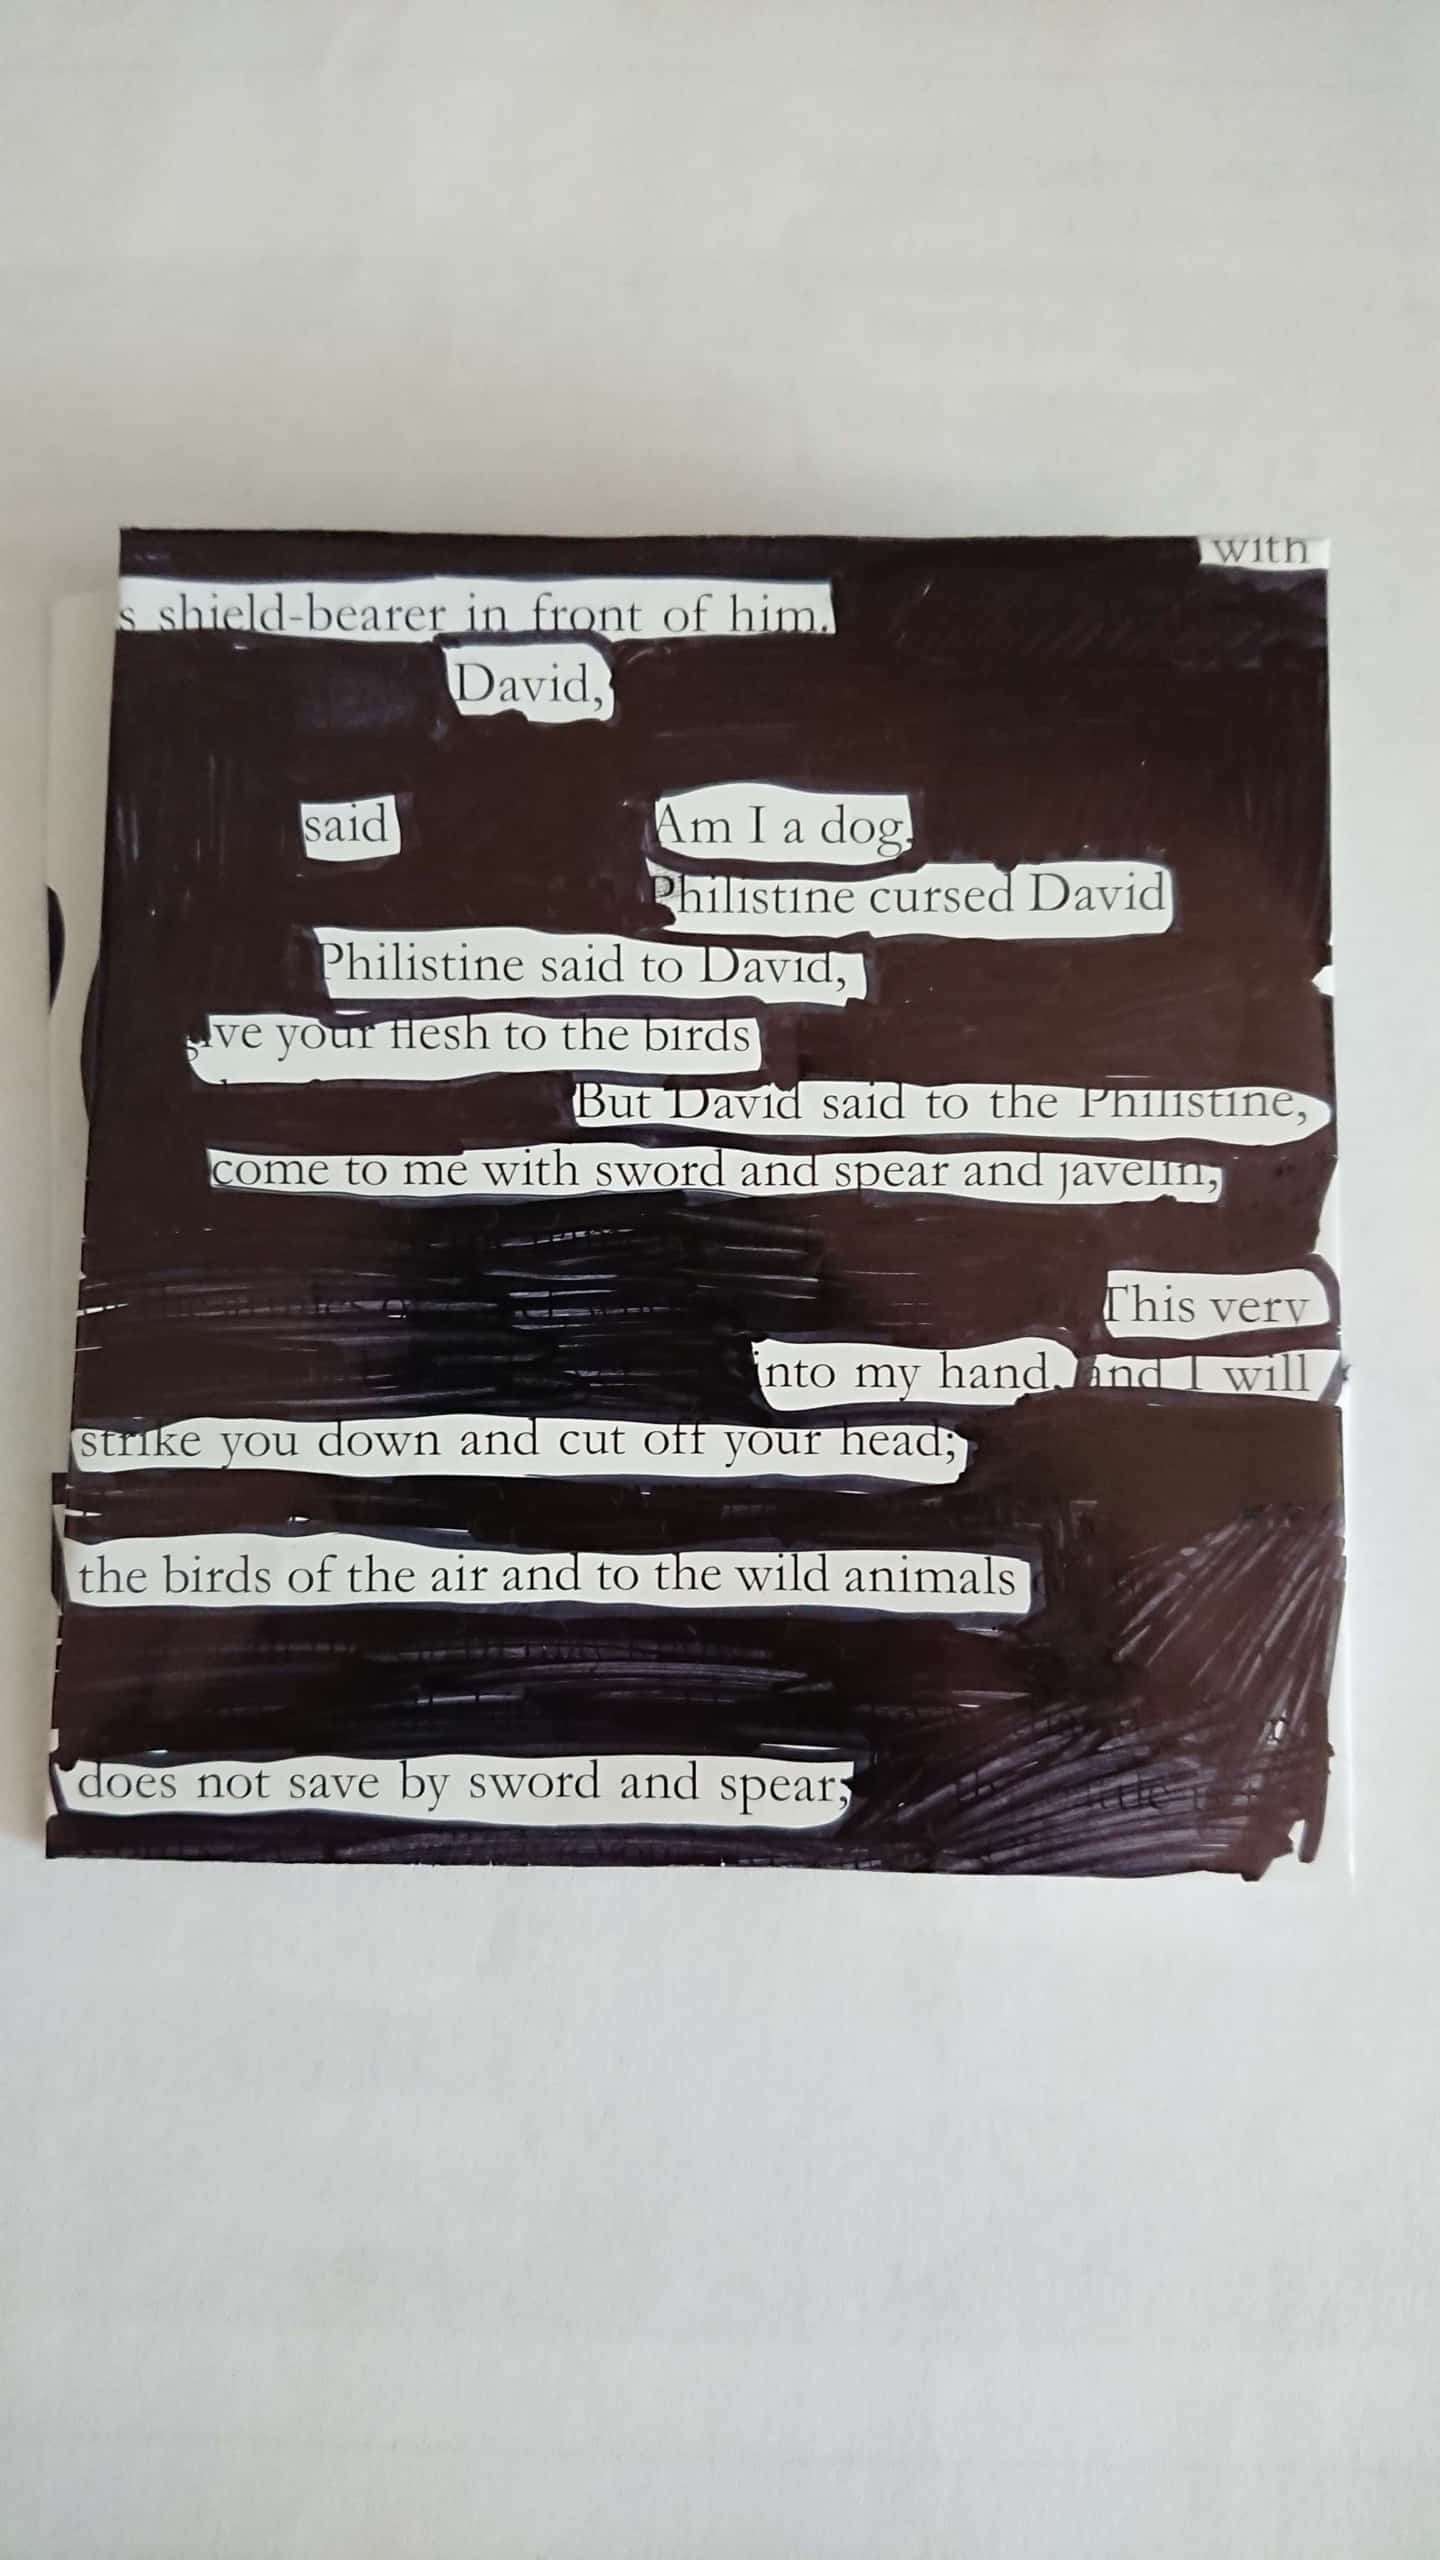 with
s shield-bearer in front of him.
David,
said Am I a dog,
Philistine cursed David
Philistine said to David,
give your flesh to the birds
But David said to the Philistine,
come to me with sword and spear and javelin,
This very
into my hand, and I will
strike you down and cut off your head;
the birds of the air and to the wild animals
does not save by sword and spear;